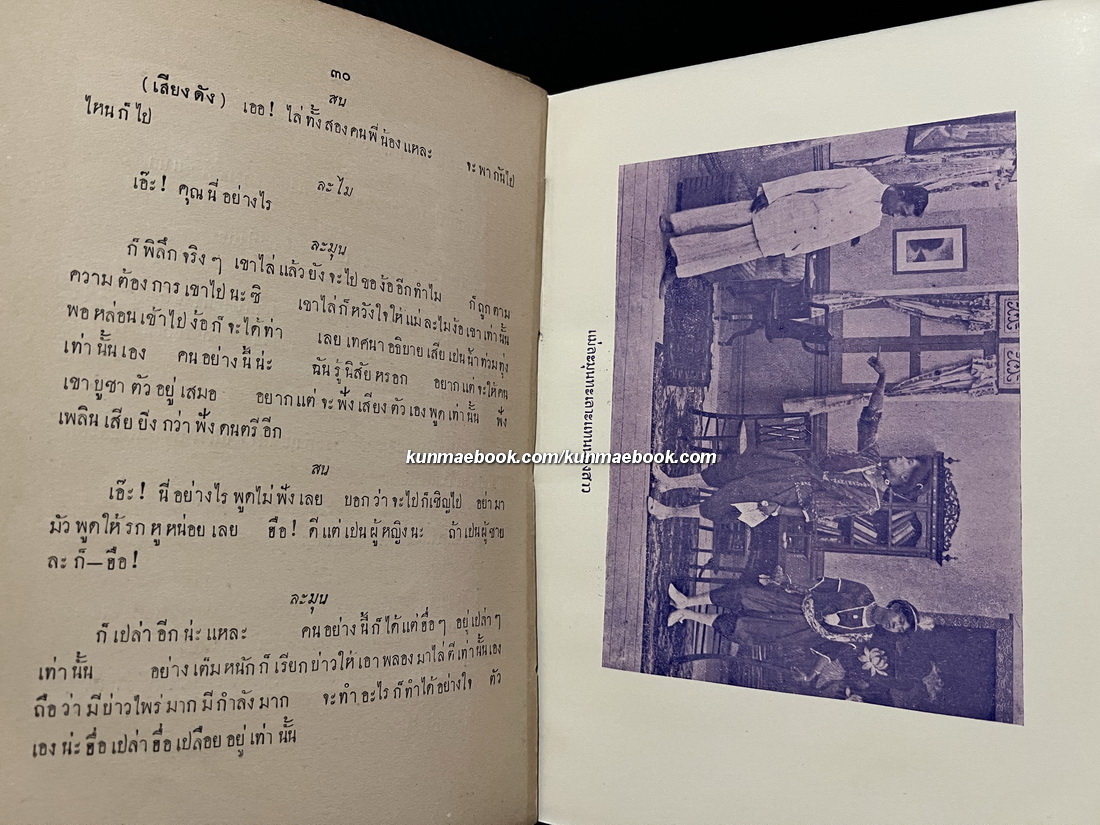 ๓๐
สน
(เสียงดัง) เออ! ไล่ทั้งสองคนพี่น้องแหละ จะพากันไป
ไหนก็ไป
ละไม
เอ๊ะ! คุณนี่อย่างไร
ละมุน
ก็พิลึกจริงๆ เขาไล่แล้วยังจะไปของ้ออีกทำไม ก็ถูกตาม
ความต้องการเขาไปนะซิ เขาไล่ก็หวังใจให้แม่ละไมง้อเขาเท่านั้น
พอหล่อนเข้าไปง้อก็จะได้ท่า เลยเทศนาอธิบายเสียเปนน้ำท่วมทุ่ง
เท่านั้นเอง คนอย่างนี้น่ะ ฉันรู้นิสัยหรอก อยากแต่จะให้คน
เขาบูชาตัวอยู่เสมอ อยากแต่จะฟังเสียงตัวเองพูดเท่านั้น ฟัง
เพลินเสียยิ่งกว่าฟังดนตรีอีก
สน
เอ๊ะ! นี่อย่างไรพูดไม่ฟังเลย บอกว่าจะไปก็เชิญไป อย่ามา
มัวพูดให้รกหูหน่อยเลย ฮือ! ดีแต่เปนผู้หญิงนะ ถ้าเปนผู้ชาย
ละก็—ฮือ!
ละมุน
ก็เปล่าอีกน่ะแหละ คนอย่างนี้ก็ได้แต่ฮื่อๆ อยู่เปล่าๆ
เท่านั้น อย่างเต็มหนักก็เรียกบ่าวให้เอาพลองมาไล่ตีเท่านั้นเอง
ถือว่ามีบ่าวไพร่มากมีกำลังมาก จะทำอะไรก็ทำได้อย่างใจ ตัว
เองน่ะฮื่อเปล่าฮื่อเปลือยอยู่เท่านั้น
แม่ละมุนทะเลาะแทนน้องสาว
kunmaebook.com/kunmaebook.com